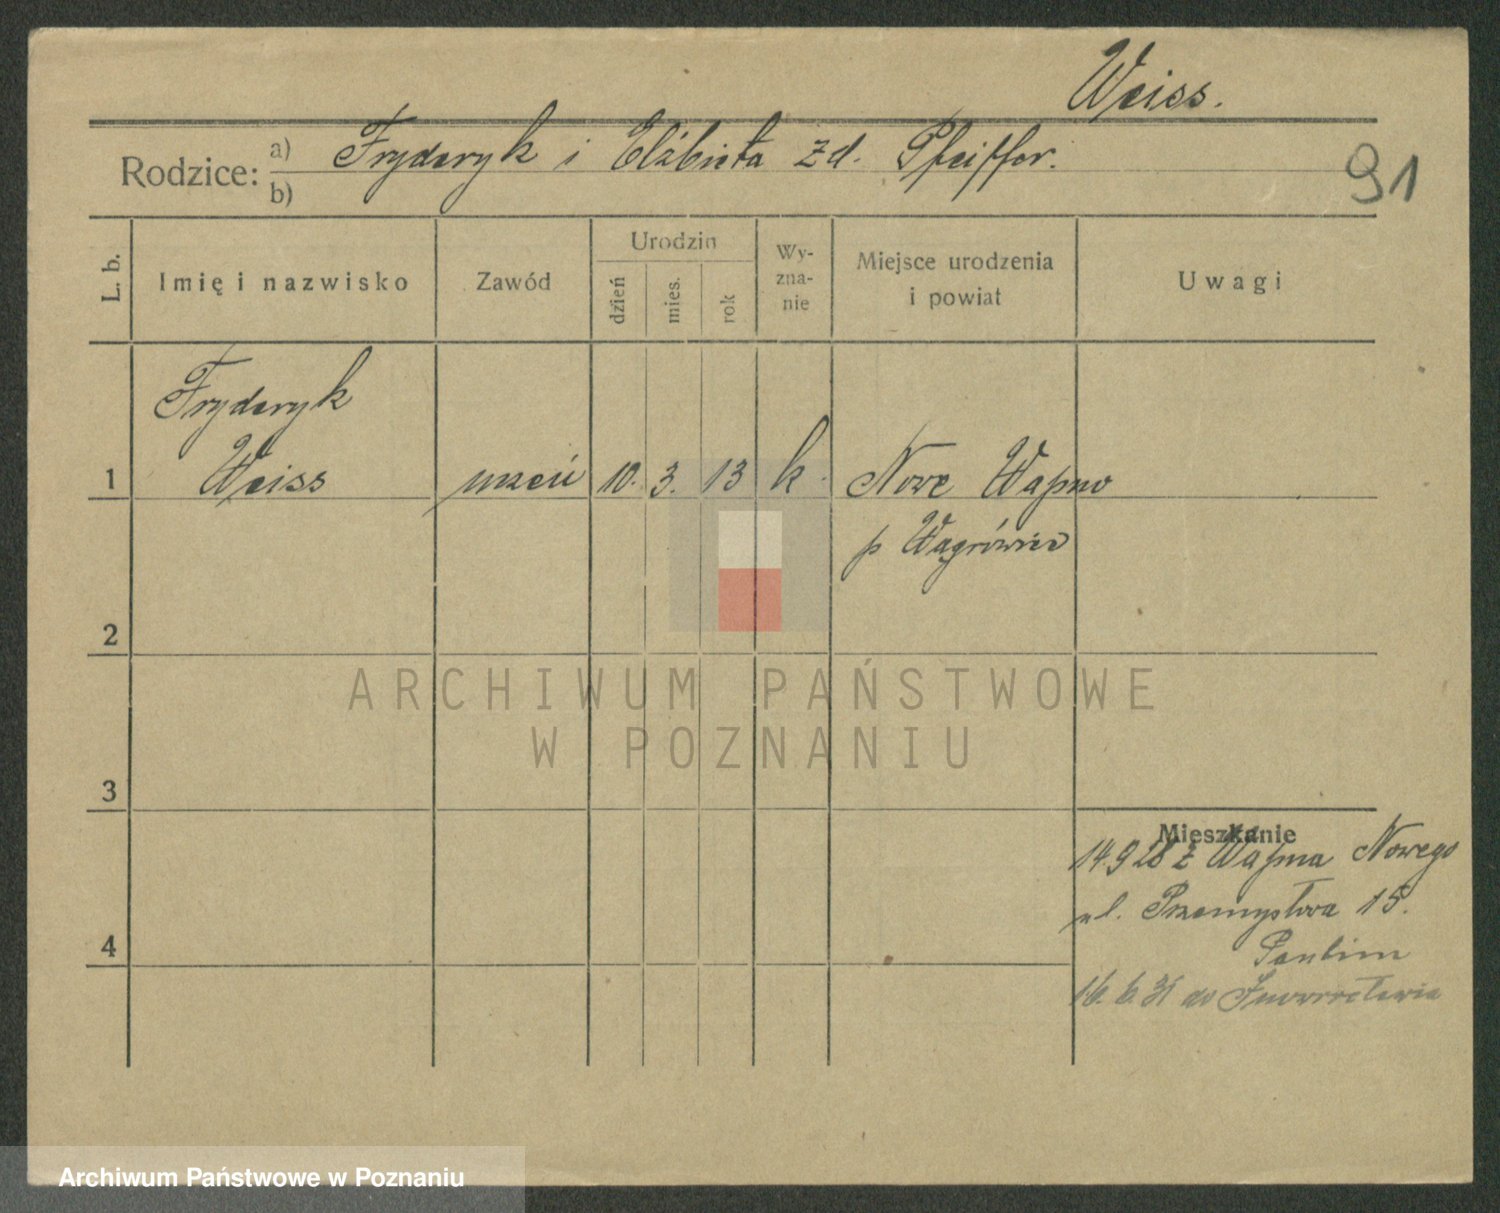 Weiss.
Rodzice: a) Fryderyk i Elżbieta zd. Pfeiffer.
b)
91
L. b.
Imię i nazwisko
Zawód
Urodzin
dzień
mies.
rok
Wy-
zna-
nie
Miejsce urodzenia
i powiat
Uwagi
Fryderyk
1 Weiss uczeń 10. 3. 13 k. Nowe Wapno
p Wągrówiec
2
3
4
ARCHIWUM PAŃSTWOWE
W POZNANIU
Mieszkanie
14.9 28 z Wapna Nowego
ul. Przemysłowa 15.
16. 6. 31 do Inowrocławia
Archiwum Państwowe w Poznaniu